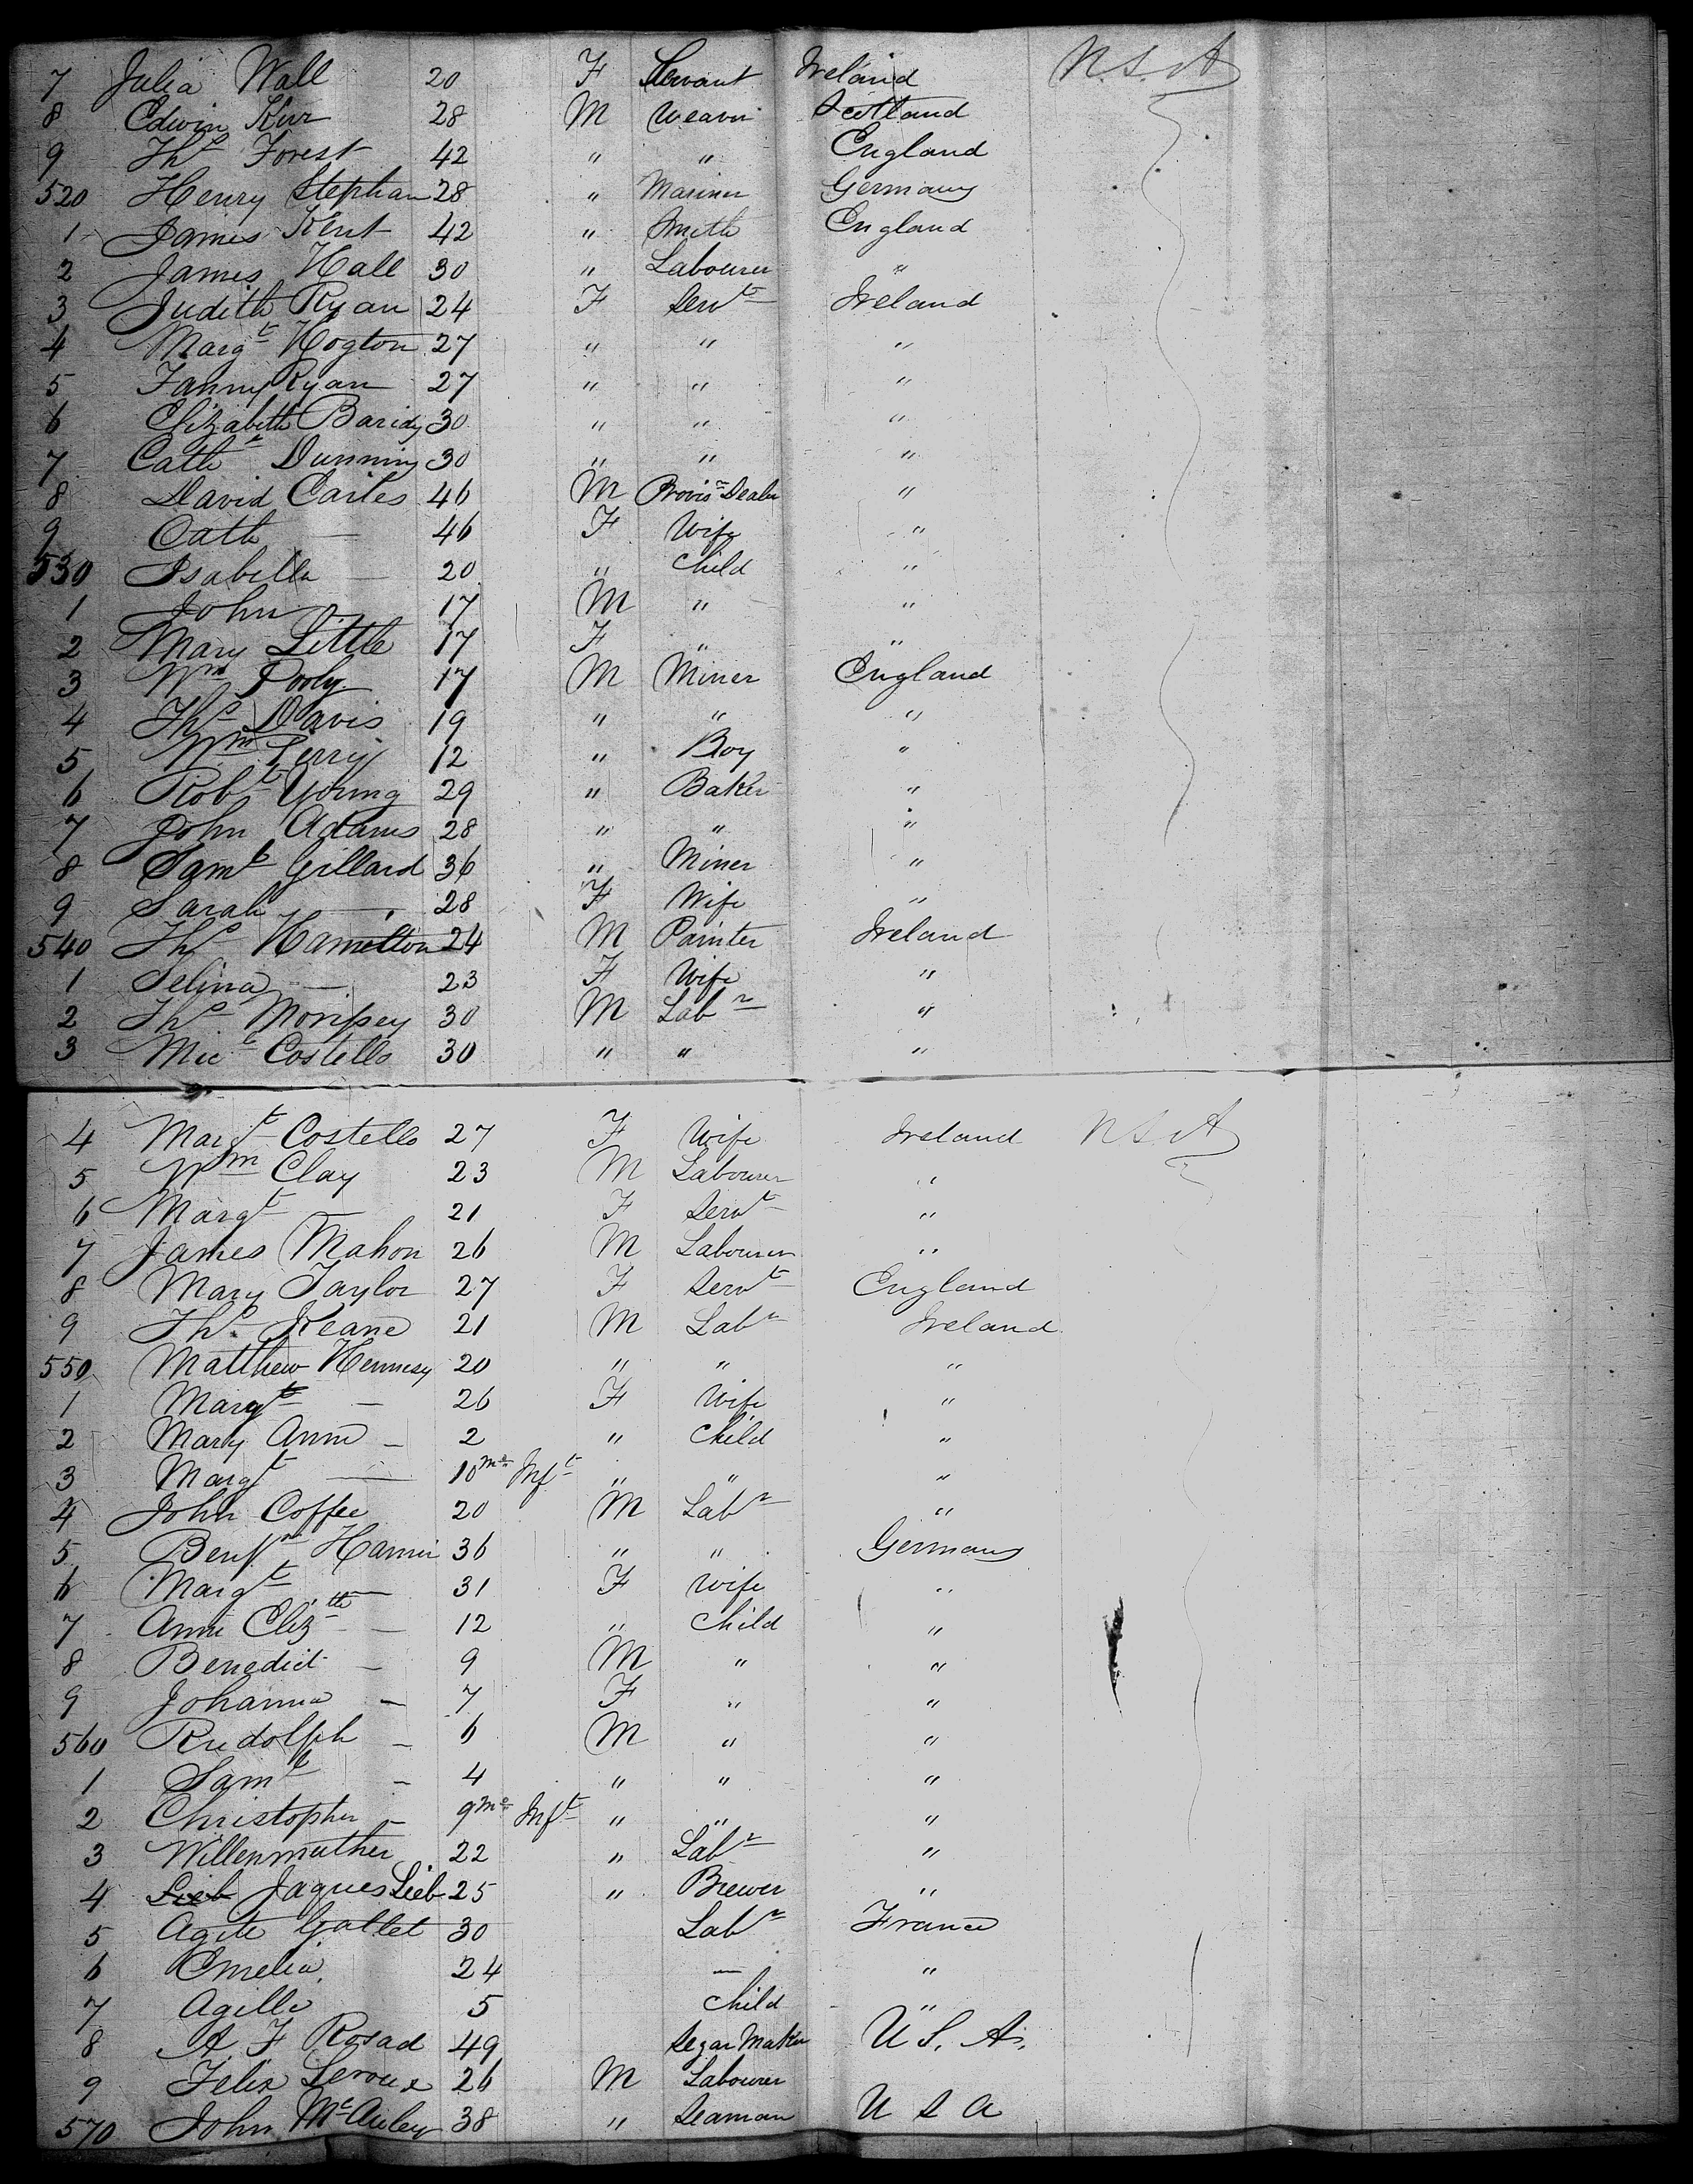 7 Julia Wall 20 F Servant Ireland U.S.A
8 Edwin Kerr 28 M Weaver Scotland
9 Thos Forest 42 " " England
520 Henry Stephan 28 " Mariner Germany
1 James Kent 42 " Smith England
2 James Hall 30 " Labourer "
3 Judith Ryan 24 F Servt Ireland
4 Margt Hogton 27 " " "
5 Fanny Ryan 27 " " "
6 Elizabeth 30 " " "
7 Cathe Dunning 30 " " "
8 David Carles 46 M Provisn Dealer "
9 Cath — 46 F Wife "
530 Isabella — 20 " Child "
1 John 17 M " "
2 Mary Little 17 F " "
3 Wm Pooly 17 M Miner England
4 Thos Davis 19 " " "
5 Wm Perry 12 " Boy "
6 Robt Young 29 " Baker "
7 John Adams 28 " " "
8 Saml Gillard 36 " Miner "
9 Sarah — 28 F Wife "
540 Thos Hamelton 24 M Painter Ireland
1 Selina — 23 F Wife "
2 Thos Morissey 30 M Labr "
3 Micl Costello 30 " " "
4 Margt Costello 27 F Wife Ireland U S A
5 Wm Clay 23 M Labourer "
6 Margt 21 F Servt "
7 James Mahon 26 M Labourer "
8 Mary Taylor 27 F Servt England
9 Thos Keane 21 M Labr Ireland
550 Matthew Hennesy 20 " " "
1 Margt — 26 F Wife "
2 Mary Anne — 2 " Child "
3 Margt — 10 Mos Inft " " "
4 John Coffee 20 M Labr "
5 Benjn 36 " " Germany
6 Margt — 31 F Wife "
7 Anne Elizth — 12 " Child "
8 Benedict — 9 M " "
9 Johanna — 7 F " "
560 Rudolph — 6 M " "
1 Saml — 4 " " "
2 Christopher — 9 Mos Inft " " "
3 Willenmuther 22 " Labr "
4 Lieb Jaques Lieb 25 " Brewer "
5 Agite Gallet 30 Labr France
6 Emelia 24 — "
7 Agille 5 Child "
8 A F Rosad 49 Segar Maker U.S.A.
9 Felix Leroux 26 M Labourer
570 John McAuley 38 " Seaman U S A